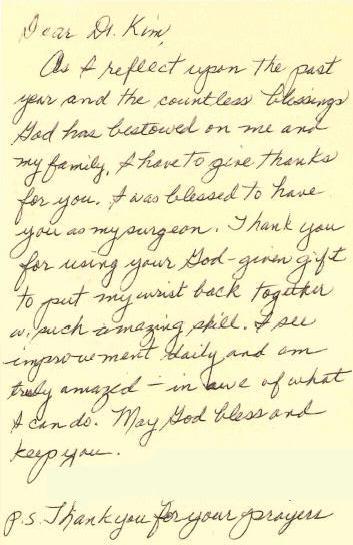 Dear Dr. Kim,
As I reflect upon the past
year and the countless blessings
God has bestowed on me and
my family, I have to give thanks
for you. I was blessed to have
you as my surgeon. Thank you
for using your God-given gift
to put my wrist back together
w. such amazing skill. I see
improvement daily and am
truly amazed - in awe of what
I can do. May God bless and
keep you.
P.S. Thank you for your prayers